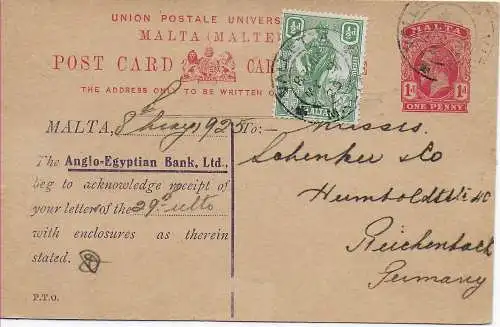 UNION POSTALE UNIVERS
MALTA (MALTE
POST CARD
CA
THE ADDRESS ONLY TO BE WRITTEN O
MALTA
1d
ONE PENNY
½d
MALTA, 8 May 1925
The Anglo-Egyptian Bank, Ltd.,
beg to acknowledge receipt of
your letter of the 29º ulto
with enclosures as therein
stated.
P.T.O.
To:- Messrs.
Schenker & Co
Humboldtstr 40
Reichenbach
Germany